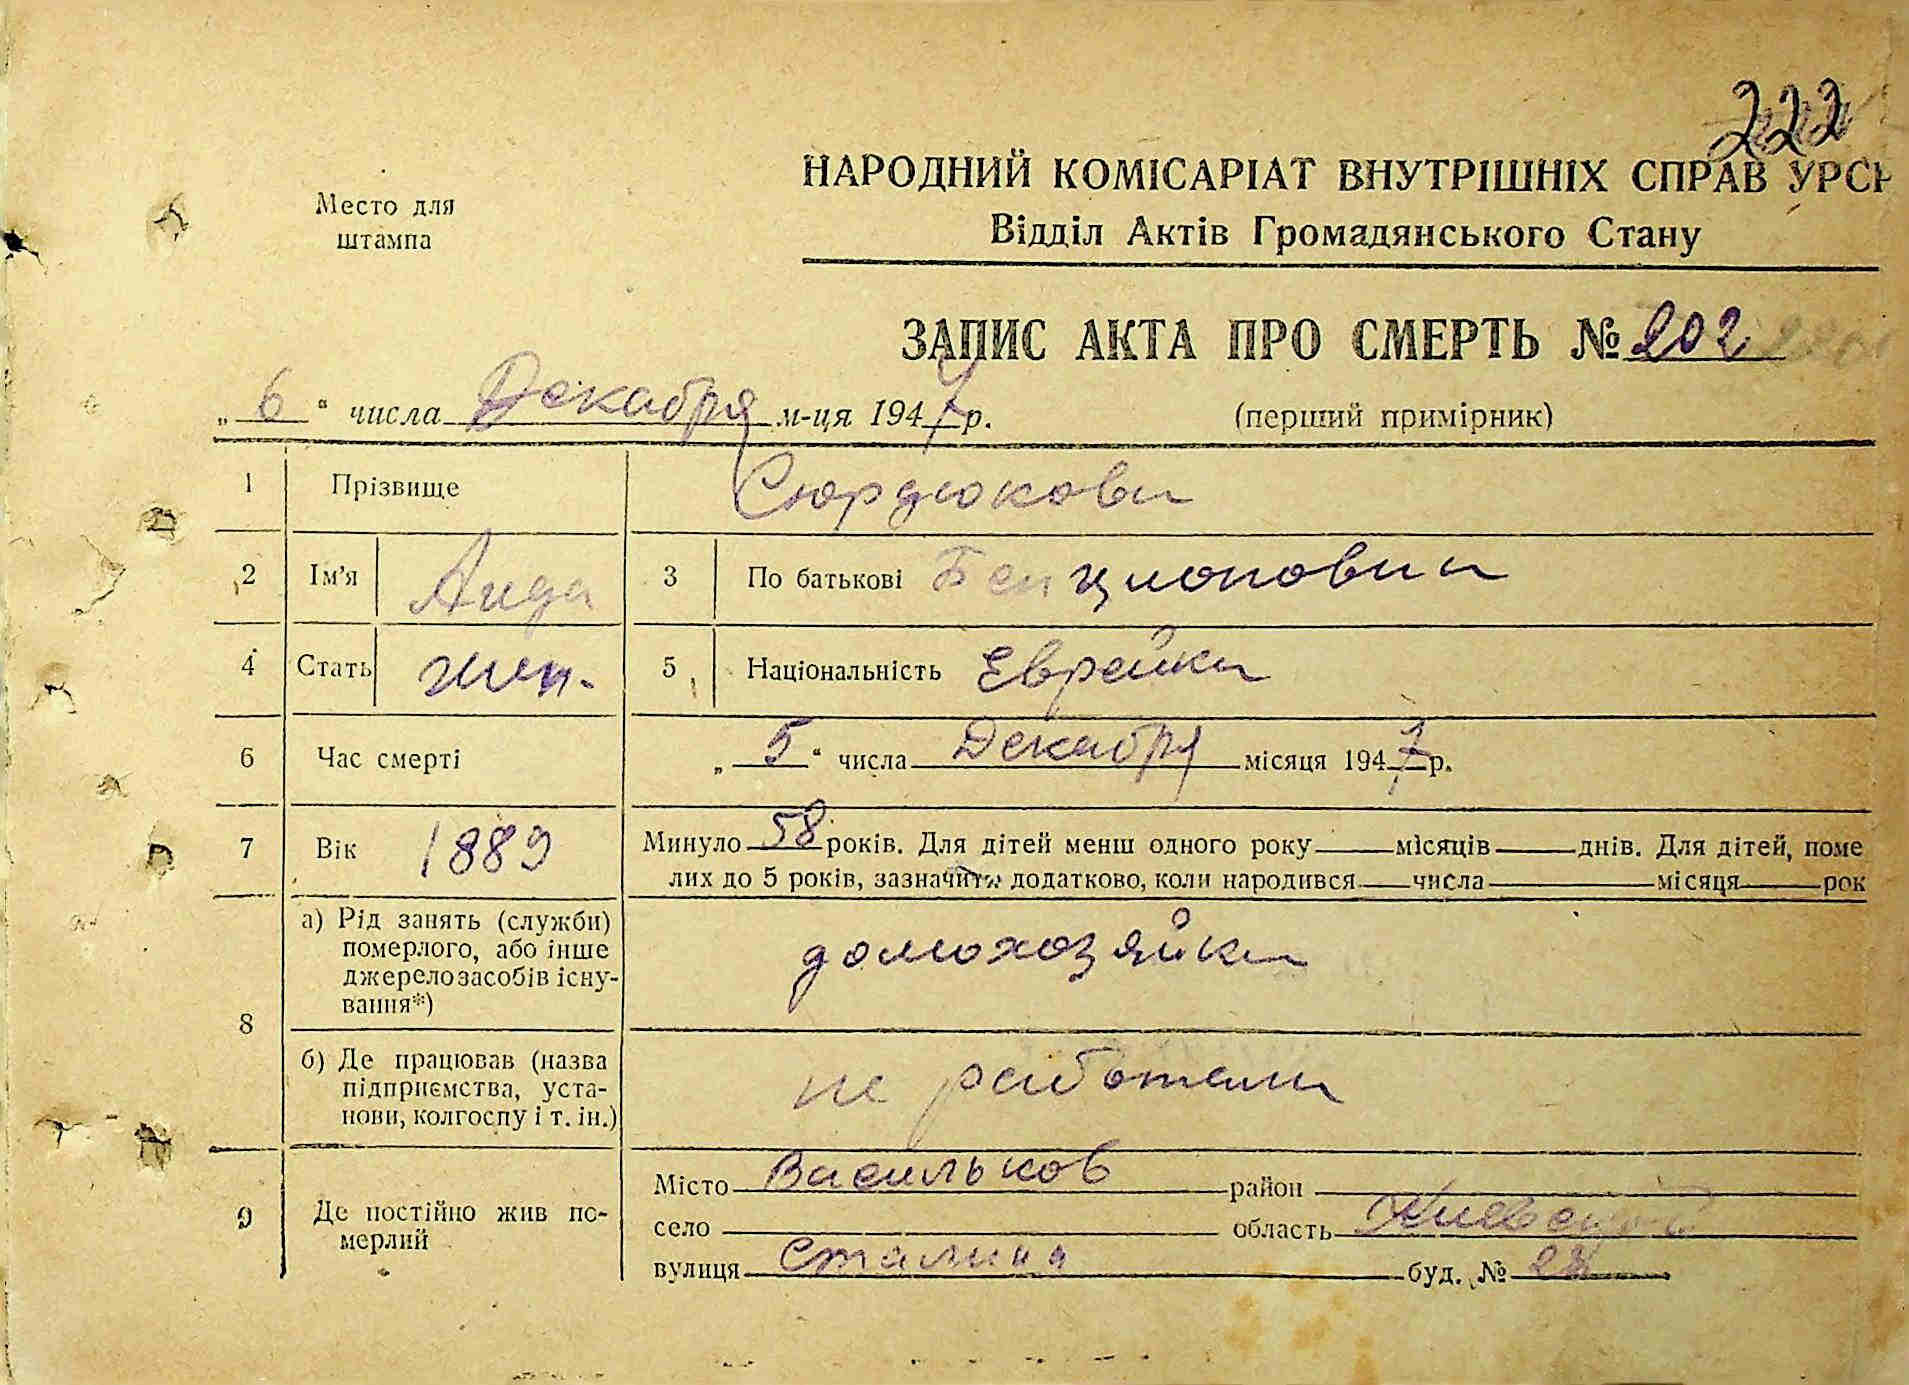 222
Место для
штампа
НАРОДНИЙ КОМІСАРІАТ ВНУТРІШНІХ СПРАВ УРСР
Відділ Актів Громадянського Стану
ЗАПИС АКТА ПРО СМЕРТЬ № 202
„ 6 “ числа Декабря м-ця 1947 р. (перший примірник)
1 Прізвище Сюрдюкова
2 Ім’я Аида 3 По батькові Бенционовна
4 Стать жен. 5 Національність Еврейка
6 Час смерті „ 5 “ числа Декабря місяця 1947 р.
7 Вік 1889 Минуло 58 років. Для дітей менш одного року місяців днів. Для дітей, поме
лих до 5 років, зазначити додатково, коли народився числа місяця рок
8 а) Рід занять (служби)
померлого, або інше
джерело засобів існу-
вання*)
домохозяйка
б) Де працював (назва
підприємства, уста-
нови, колгоспу і т. ін.)
не работала
9 Де постійно жив по-
мерлий
Місто Васильков район
село область Киевской
вулиця Сталина буд. №